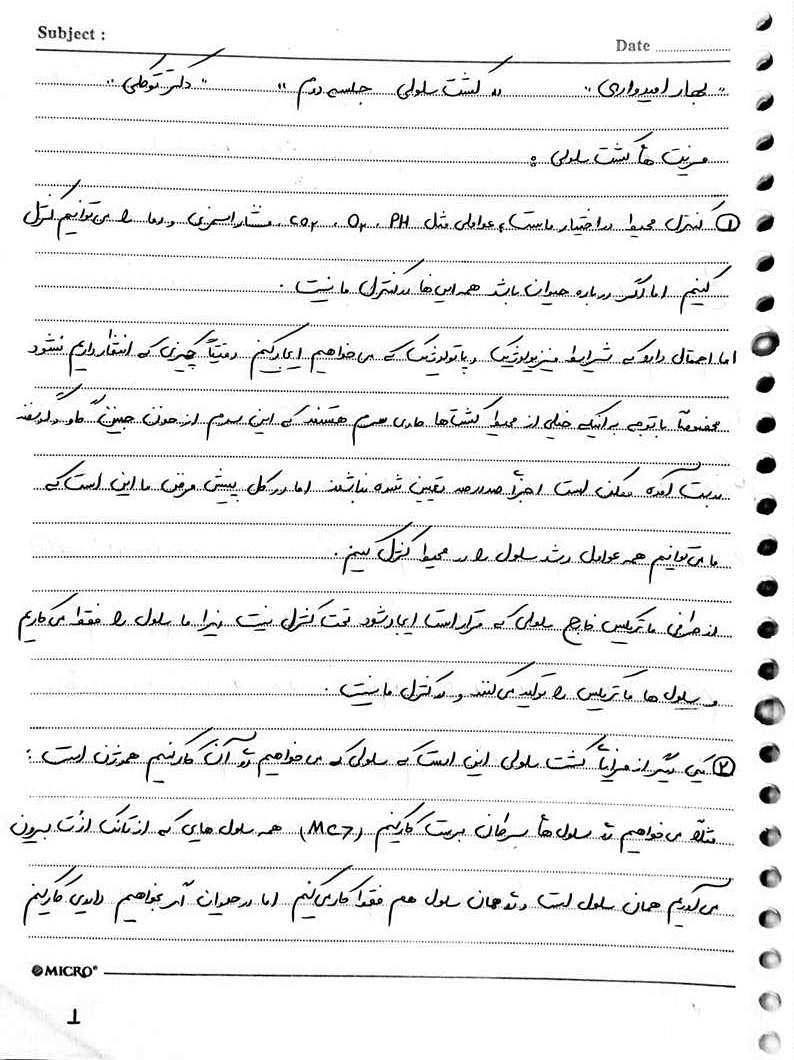 Subject :
Date
" بهار امیدواری " " کشت سلولی جلسه دوم " " دکتر توکلی "
مزیت های کشت سلولی :
① کنترل محیط در اختیار ماست، عواملی مثل PH ، O₂ ، CO₂ ، فشار اسمزی و دما را می‌توانیم کنترل
کنیم اما اگر درباره حیوان باشد همه این‌ها در کنترل ما نیست .
اما احتمال دارد که شرایط فیزیولوژیک و پاتولوژیک که می‌خواهیم ایجاد کنیم دقیقاً چیزی که انتظار داریم نشود
مخصوصاً با توجه به اینکه خیلی از محیط کشت‌ها حاوی سرم هستند که این سرم از خون جنین گاو و گوسفند
بدست آمده ممکن است اجزاً صددرصد تعیین شده نباشند اما در کل پیش فرض ما این است که
ما می‌توانیم همه عوامل رشد سلول را در محیط کنترل کنیم .
از طرفی ماتریکس خارج سلولی که قرار است ایجاد شود تحت کنترل نیست زیرا ما سلول را فقط می‌کاریم
و سلول ها ماتریکس را تولید می‌کنند و در کنترل ما نیست .
② یکی دیگر از مزایای کشت سلولی این است که سلولی که می‌خواهیم رو آن کار کنیم هموژن است :
مثلاً می‌خواهیم رو سلول‌های سرطان برست کار کنیم (MC7) همه سلول هایی که از تانک ازت بیرون
می‌آوریم همان سلول است و رو همان سلول هم فقط کار می‌کنیم اما در حیوان اگر بخواهیم داروی کار کنیم
MICRO®
1